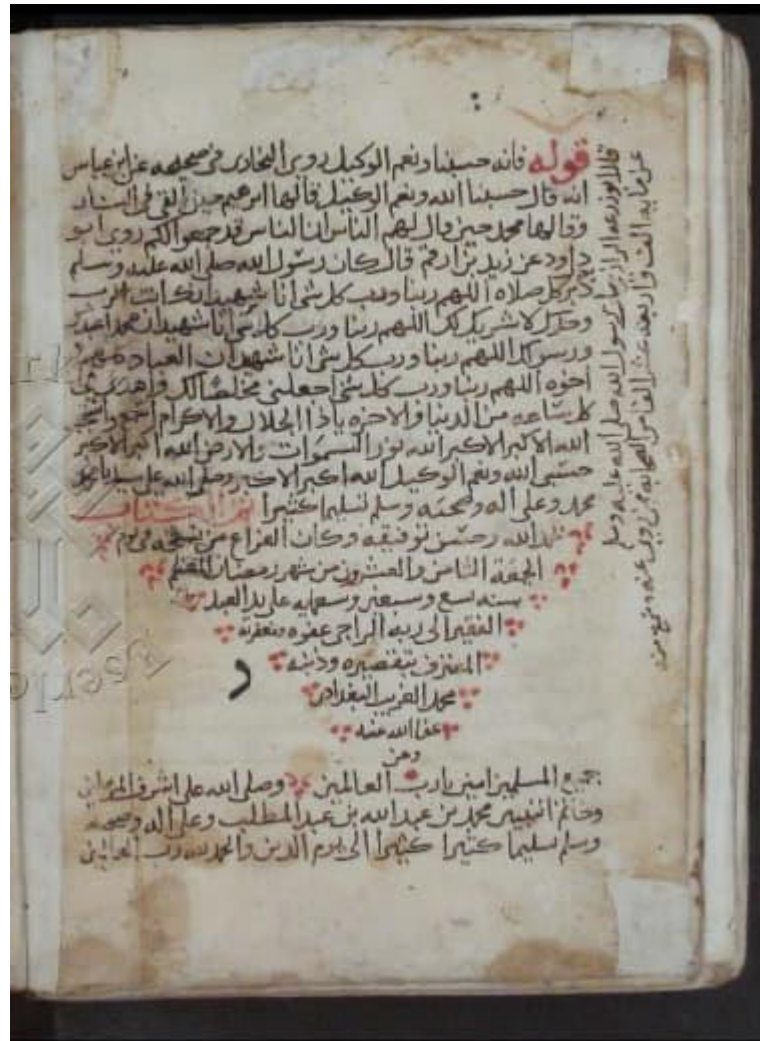 قوله فانه حسبنا ونعم الوكيل روي البخاري في صحيحه عن ابن عباس
انه قال حسبنا الله ونعم الوكيل قالها ابرهيم حين القي في النار
وقالها محمد حين قال لهم الناس ان الناس قد جمعوا لكم روي ابو
داود عن زيد بن ارقم قال كان رسول الله صلى الله عليه وسلم
دبر كل صلاه اللهم ربنا ورب كل شي انا شهيد انك انت الرب
وحدك لا شريك لك اللهم ربنا ورب كل شي انا شهيد ان محمد اعبدك
ورسولك اللهم ربنا ورب كل شي انا شهيد ان العباد كلهم
اخوه اللهم ربنا ورب كل شي اجعلني مخلصا لك واهلي في
كل ساعه من الدنيا والاخره ياذا الجلال والاكرام اسمع واستجب
الله الاكبر الاكبر الله نور السموات والارض الله اكبر الاكبر
حسبي الله ونعم الوكيل الله اكبر الاكبر وصلى الله على سيدنا
محمد وعلى اله وصحبه وسلم تسليما كثيرا تم الكتاب
بحمد الله وحسن توفيقه وكان الفراغ من نسخه في يوم
الجمعة الثامن والعشرون من شهر رمضان المعظم
سنه تسع وسبعين وتسعمايه على يد العبد
الفقير الى ربه الراجي عفوه ومغفرته
المعترف بتقصيره وذنبه
محمد الغريب البغدادي
عفا الله عنه
وعن
جميع المسلمين امين يا رب العالمين وصلى الله على اشرف المرسلين
وخاتم النبيين محمد بن عبد الله بن عبد المطلب وعلى اله وصحبه
وسلم تسليما كثيرا كثيرا الى يوم الدين والحمد لله رب العالمين
قال ابو زرعه الرازي مات رسول الله صلى الله عليه وسلم
عن مايه الف واربعه عشر الفا من الصحابه ممن روي عنه وسمع منه